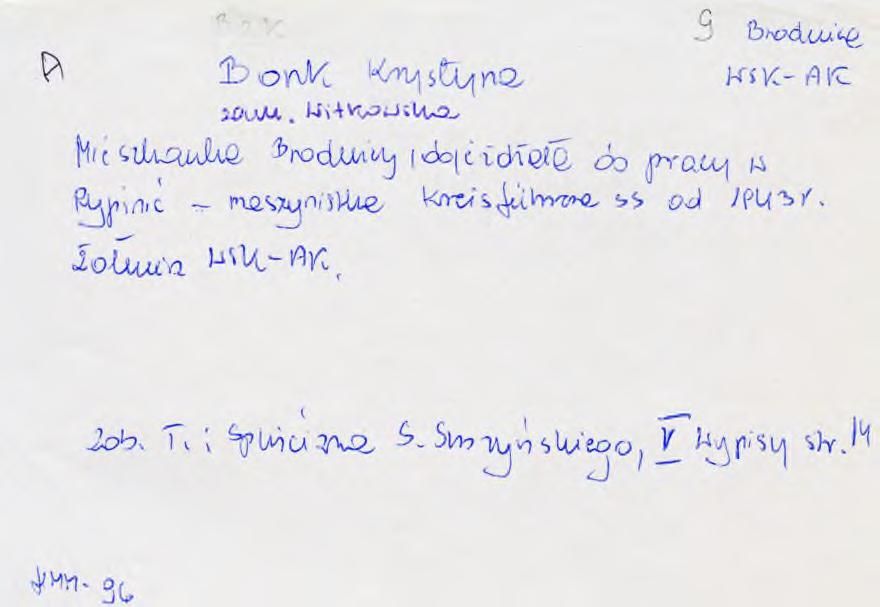 g Brodnica
A Bonk Krystyna WSK-AK
zam. Witkowska
Mieszkanka Brodnicy, dojeżdżała do pracy w
Rypinie - maszynistka Kreisführera SS od 1943 r.
Żołnierz WSK-AK.
Zob. T.: Spuścizna S. Suszyńskiego, V Wypisy str. 14
96